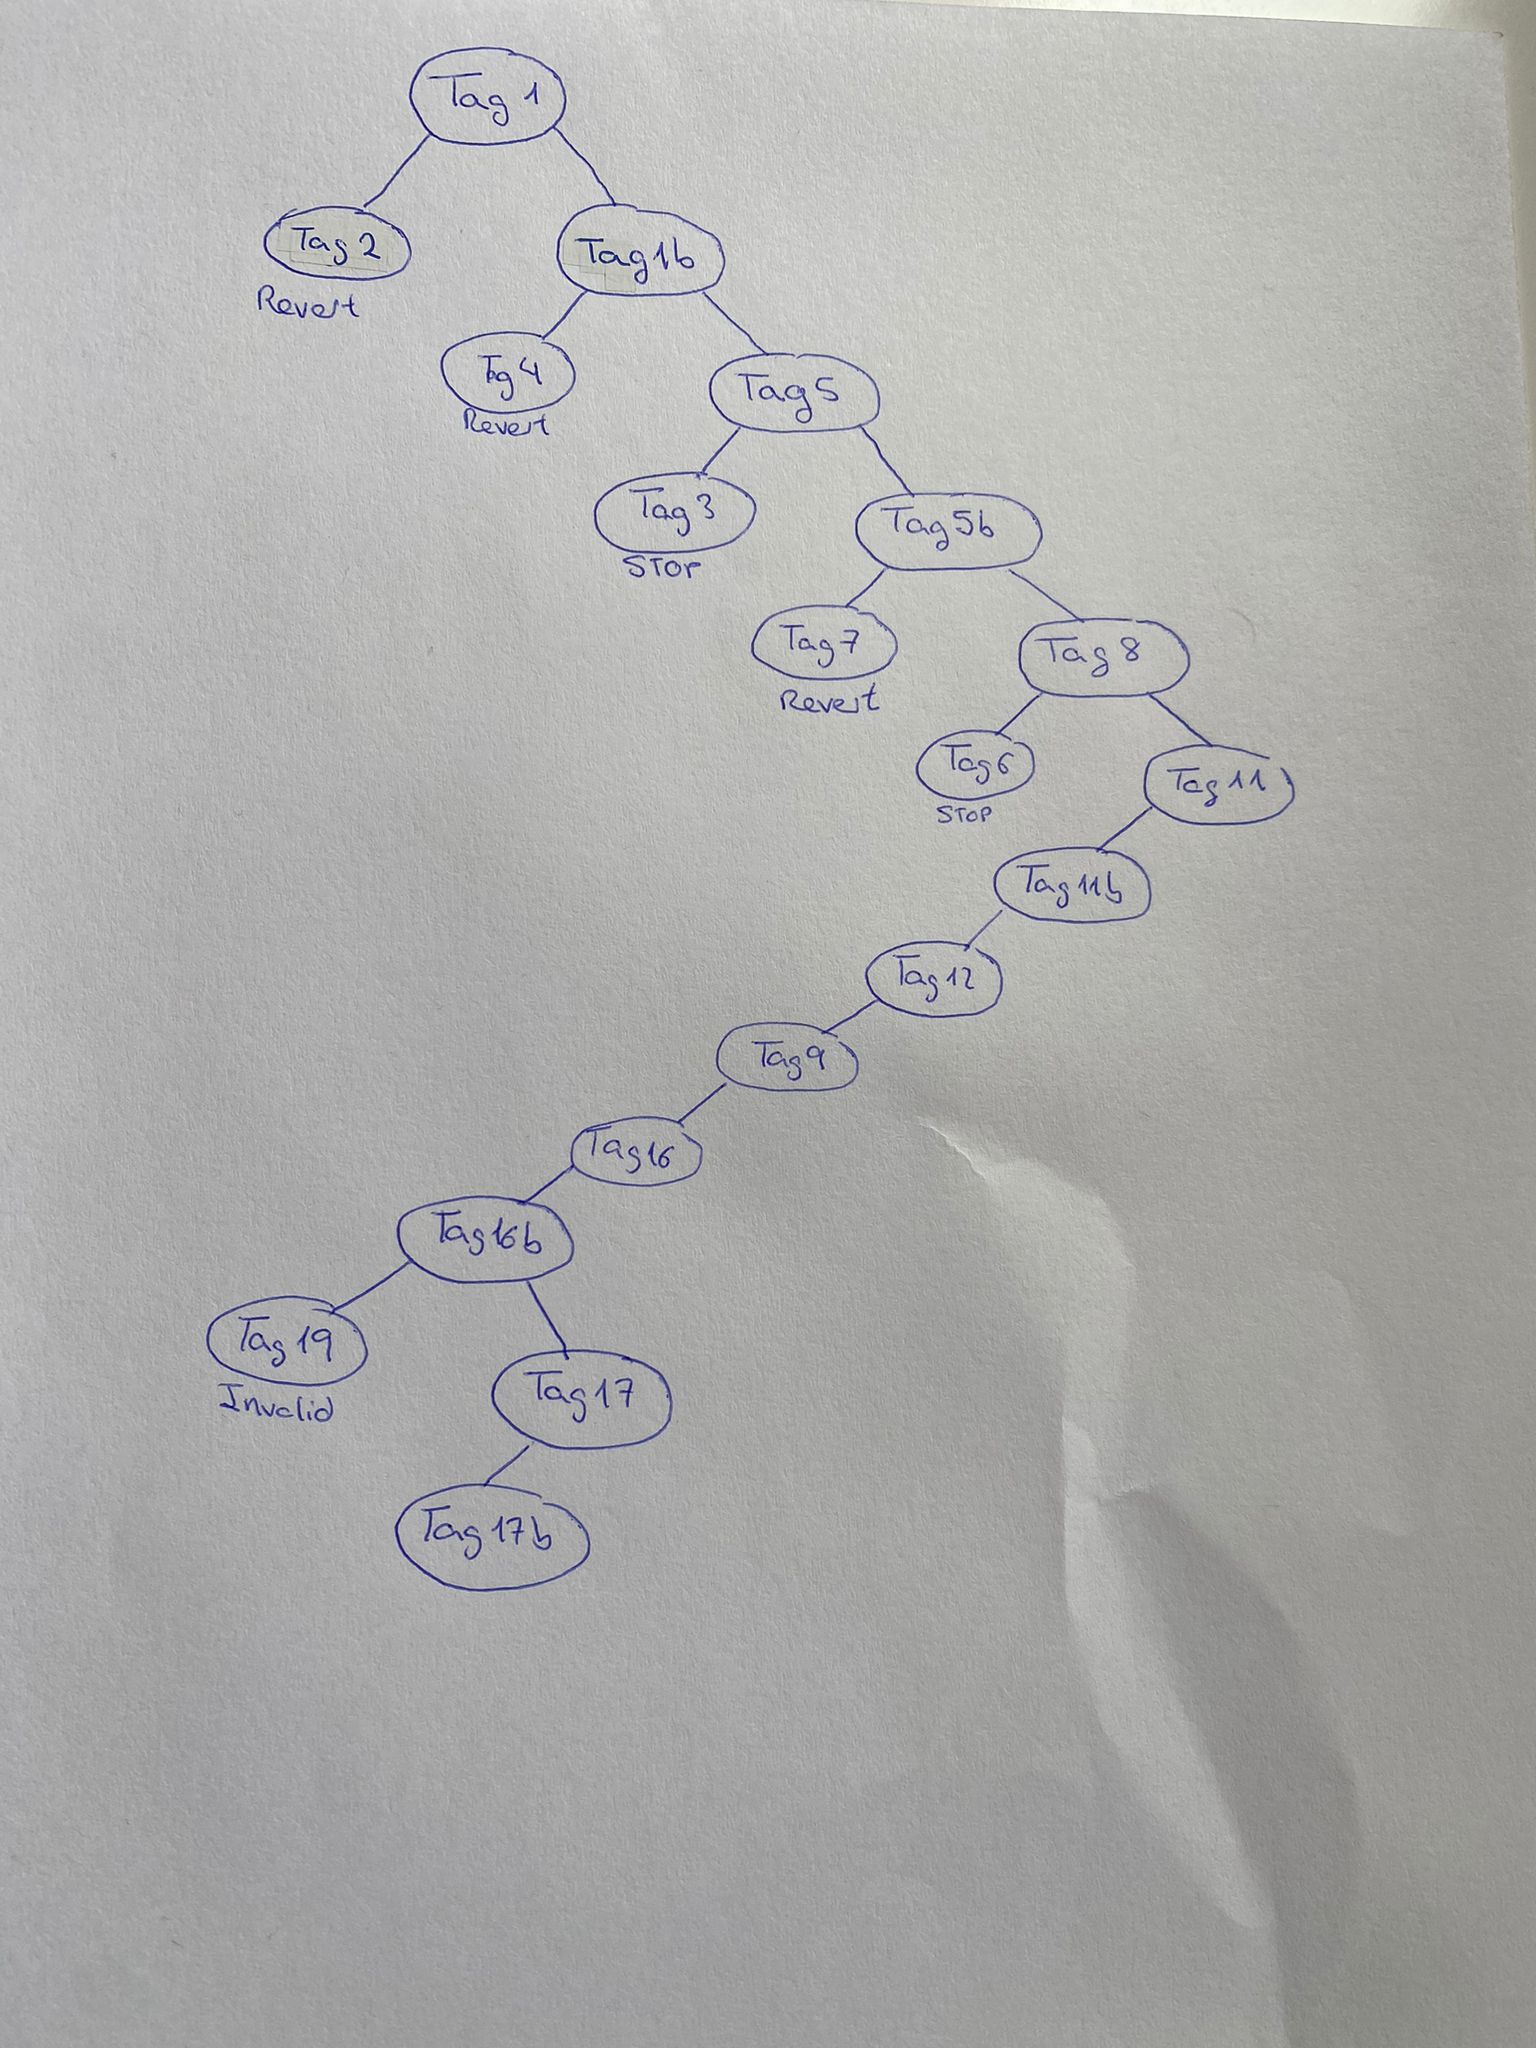 Tag 1
Tag 2
Revert
Tag1b
Tag 4
Revert
Tag5
Tag 3
STOP
Tag5b
Tag 7
Revert
Tag 8
Tag6
STOP
Tag 11
Tag11b
Tag12
Tag9
Tag16
Tag16b
Tag 19
Invalid
Tag17
Tag 17b